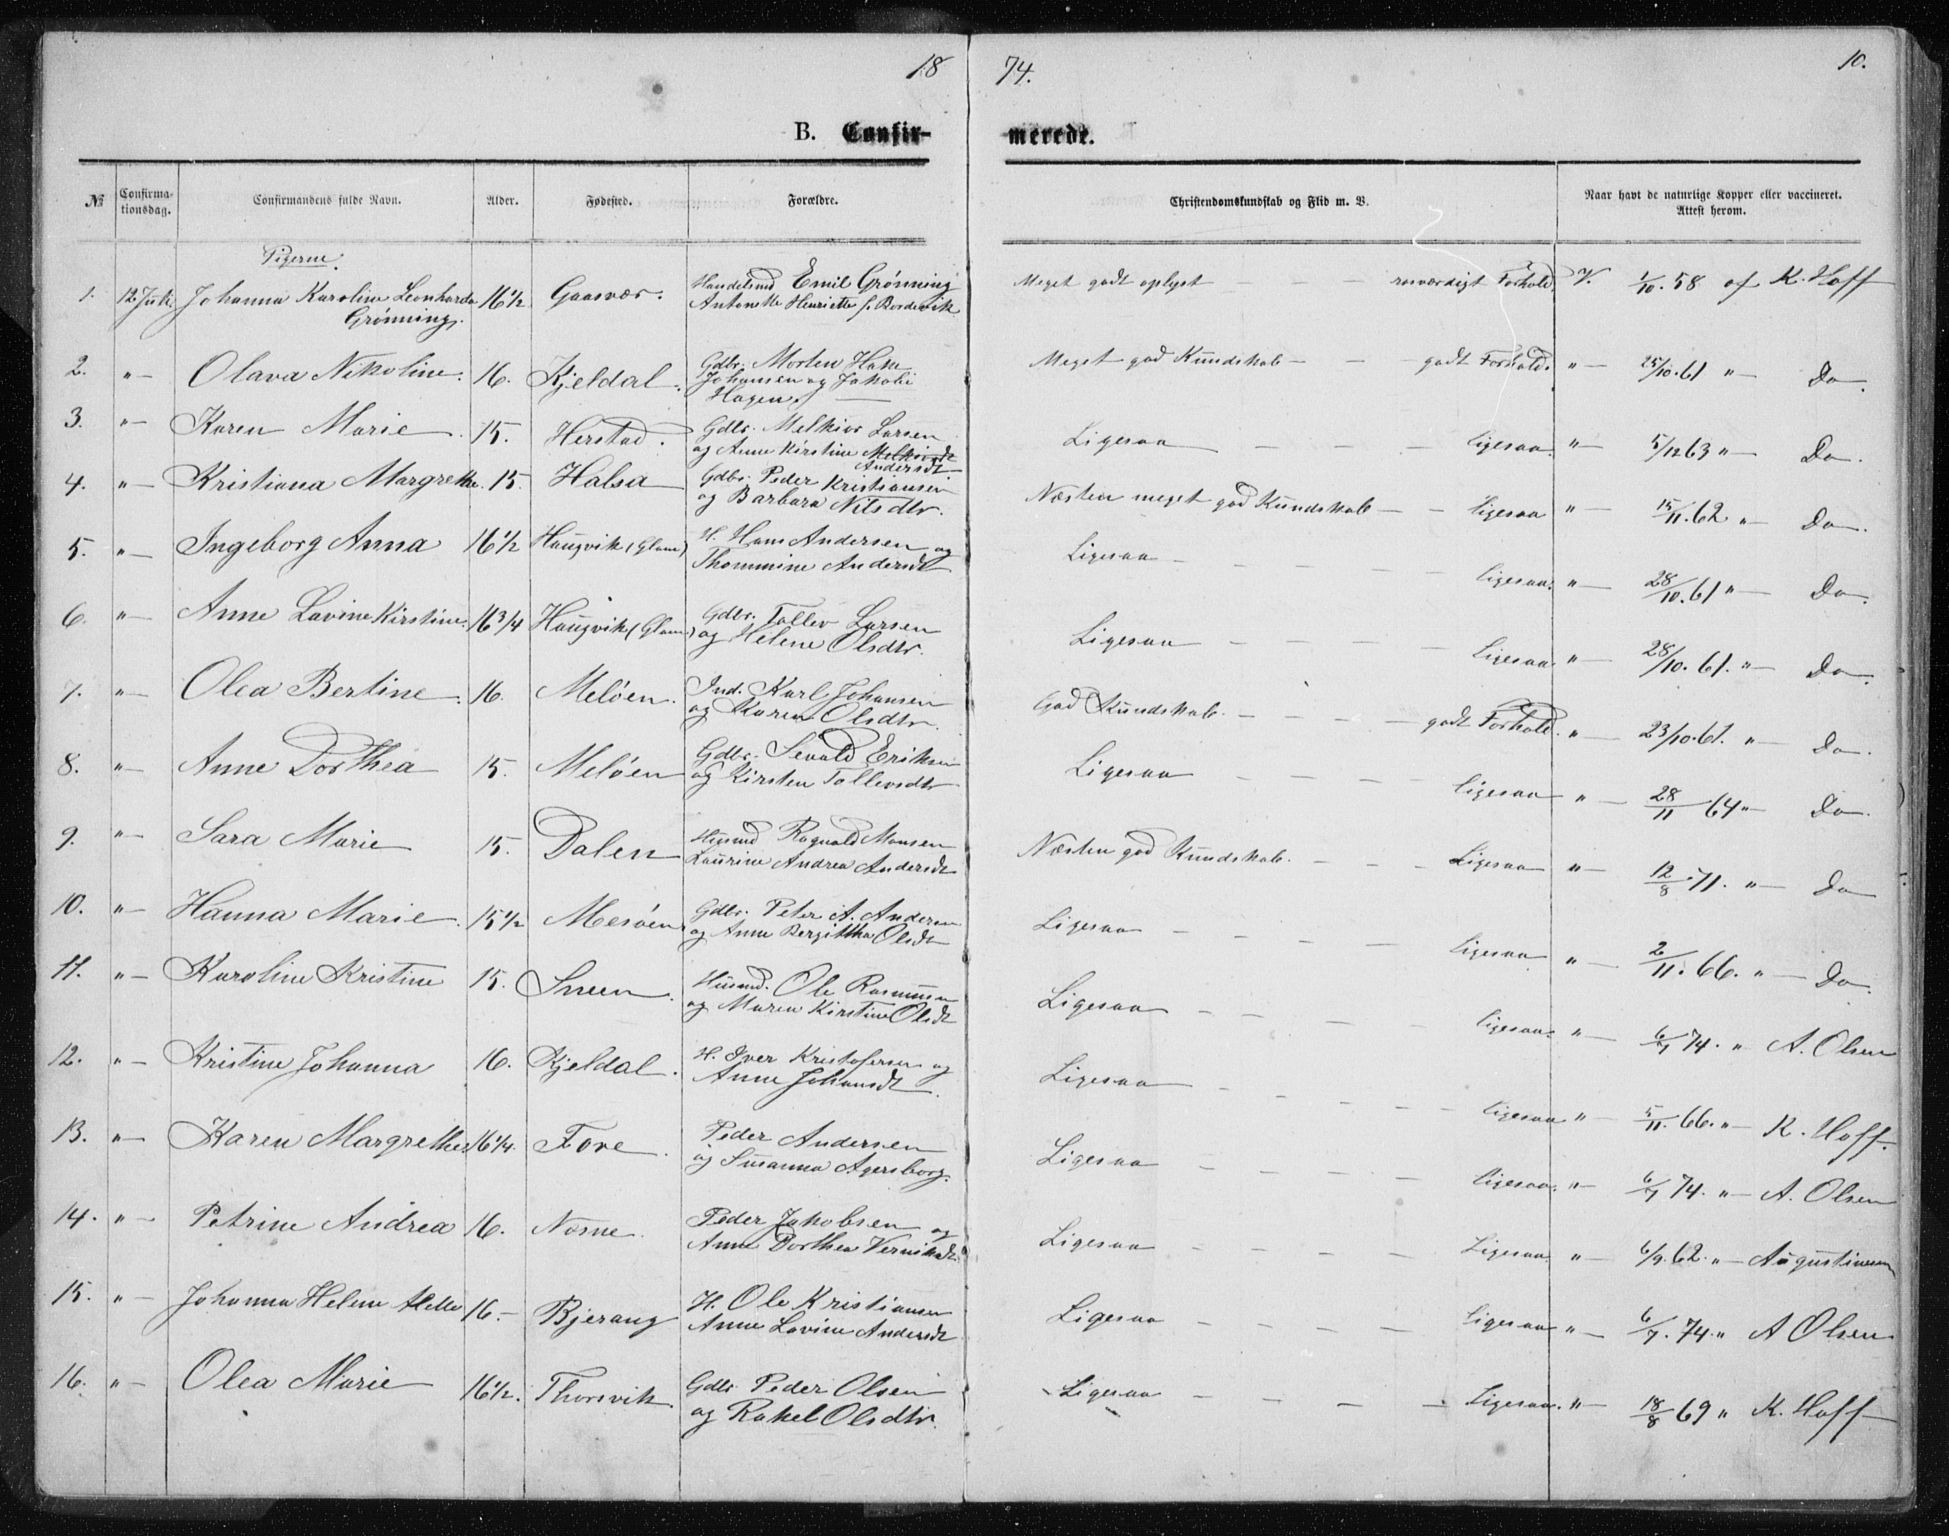 18 74. 10.
B. Confir- merede.
№ Confirma-tionsdag. Confirmandens fulde Navn. Alder. Fødested. Forældre. Christendomskundskab og Flid m. V. Naar havt de naturlige Kopper eller vaccineret. Attest herom.
Pigerne.
1. 12 Juli Johanna Karoline Leonharda 16 1/2 Gaasvær. Handelsmd Emil Grønning Meget godt oplyst — — — rosværdigt Forhold. V. 1/10. 58 af K. Hoff
Grønning. Antonette Henriette f. Bordevik
2. " — Olava Nikoline. 16. Kjeldal. Gdbr. Morten Hans Meget god Kundskab — — — godt Forhold. " — 25/10. 61 " — Do.
Johansen og Jakobi
Hagen
3. " — Karen Marie. 15. Herstad. Gdbr. Melkior Larsen Ligesaa — — — ligesaa. " — 5/12 63 " — Do.
og Anne Kirstine Melkiordt
Andersdt
4. " — Kristiana Margrethe. 15. Halsa Gdbr. Peder Kristiansen Næsten meget god Kundskab — — ligesaa " — 15/11. 62 " — Do.
og Barbara Nilsdtr.
5. " — Ingeborg Anna 16 1/2 Haugvik (Glom) H. Hans Andersen og Ligesaa — — — ligesaa. " — 28/10. 61 " — Do.
Thommine Andersdt
6. " — Anne Lavine Kirstine. 16 3/4 Haugvik (Glom) Gdbr. Tollev Larsen Ligesaa — — — Ligesaa. " — 28/10. 61. " — Do.
og Helene Olsdtr.
7. " — Olea Bertine. 16. Meløen. Ind. Karl Johansen God Kundskab. — — — godt Forhold. " — 23/10. 61. " — Do.
og Karen Olsdtr.
8. " — Anne Dorthea 15. Meløen Gdbr. Sevald Eriksen Ligesaa — — — ligesaa " — 28/11 64 " — Do.
og Kirsten Tollevsdtr
9. " — Sara Marie 15. Dalen Husmd Ragnvald Monsen Næsten god Kundskab. — — — Ligesaa " — 12/8. 71. " — Do
Laurine Andrea Andersdt
10. " — Hanna Marie. 15 1/2 Mesøen Gdbr. Peter A. Andersen Ligesaa — — — ligesaa " — 2/11. 66. " — Do.
og Anne Bergitha Olsdt
11. " — Karoline Kristine 15. Sneen. Husmd. Ole Rasmussen Ligesaa — — — ligesaa. " — 6/7 74. " A. Olsen
og Maren Kirstine Olsdt
12. " — Kristine Johanna 16. Kjeldal. H. Iver Kristofersen og Ligesaa — — — ligesaa " — 5/11. 66. " — K. Hoff.
Anne Johansdt.
13. " — Karen Margrethe 16 1/4. Fore. Peder Andersen Ligesaa — — — ligesaa. " — 6/7 74. " — A. Olsen
og Susanna Agersborg.
14. " — Petrine Andrea 16. Nosne. Peder Jakobsen og Ligesaa — — — Ligesaa. " — 6/9. 62. " — Augustinussen
Anne Dorthea
15. " — Johanna Helene 16. — Bjerang H. Ole Kristiansen Ligesaa — — — ligesaa " — 6/7. 74. " A Olsen
Anne Lovine Andersdt
16. " — Olea Marie 16 1/2. Thorsvik. Gdbr Peder Olsen Ligesaa — — — Ligesaa. " — 18/8 69 " K. Hoff
og Rakel Olsdtr.